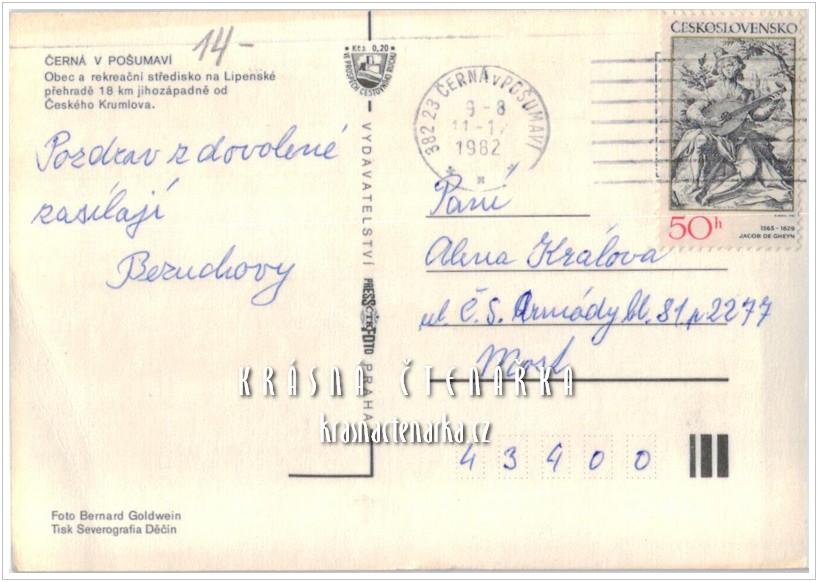 ČERNÁ V POŠUMAVÍ
Obec a rekreační středisko na Lipenské
přehradě 18 km jihozápadně od
Českého Krumlova.
14-
Kčs 0,20
VE PROSPĚCH CESTOVNÍHO RUCHU
382 23 ČERNÁ V POŠUMAVÍ
9-8
11-12
1982
ČESKOSLOVENSKO
50h
1565-1629
JACOB DE GHEYN
Pozdrav z dovolené
zasílají
Bezuchovy
VYDAVATELSTVÍ PRESSFOTO PRAHA
ČTK
Paní
Alena Králová
ul. Č. S. Armády bl. 81. p 2277
Most
43400
KRÁSNÁ ČTENÁRKA
krasnactenarka.cz
Foto Bernard Goldwein
Tisk Severografia Děčín